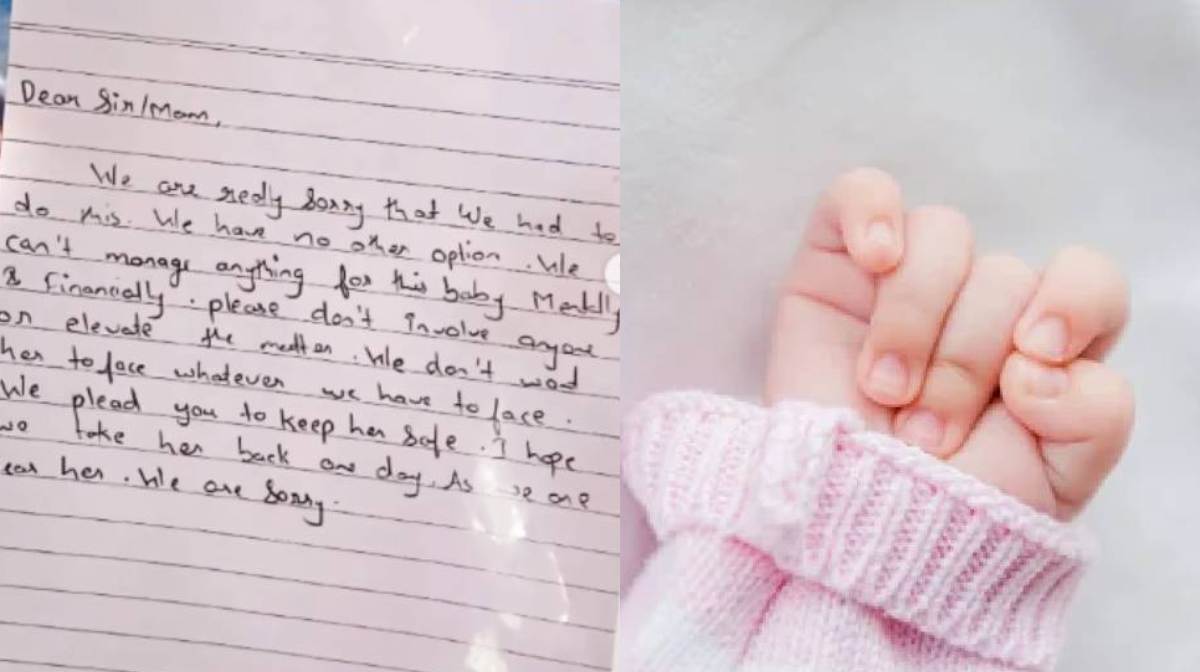 Dear Sir/Mam,
We are really sorry that We had to
do this. We have no other option. We
can't manage anything for this baby Mentally
& Financially. please don't involve anyone
or elevate the matter. We don't wad
her to face whatever we have to face.
We plead you to keep her safe. I hope
we take her back one day. As we are
her. We are sorry.